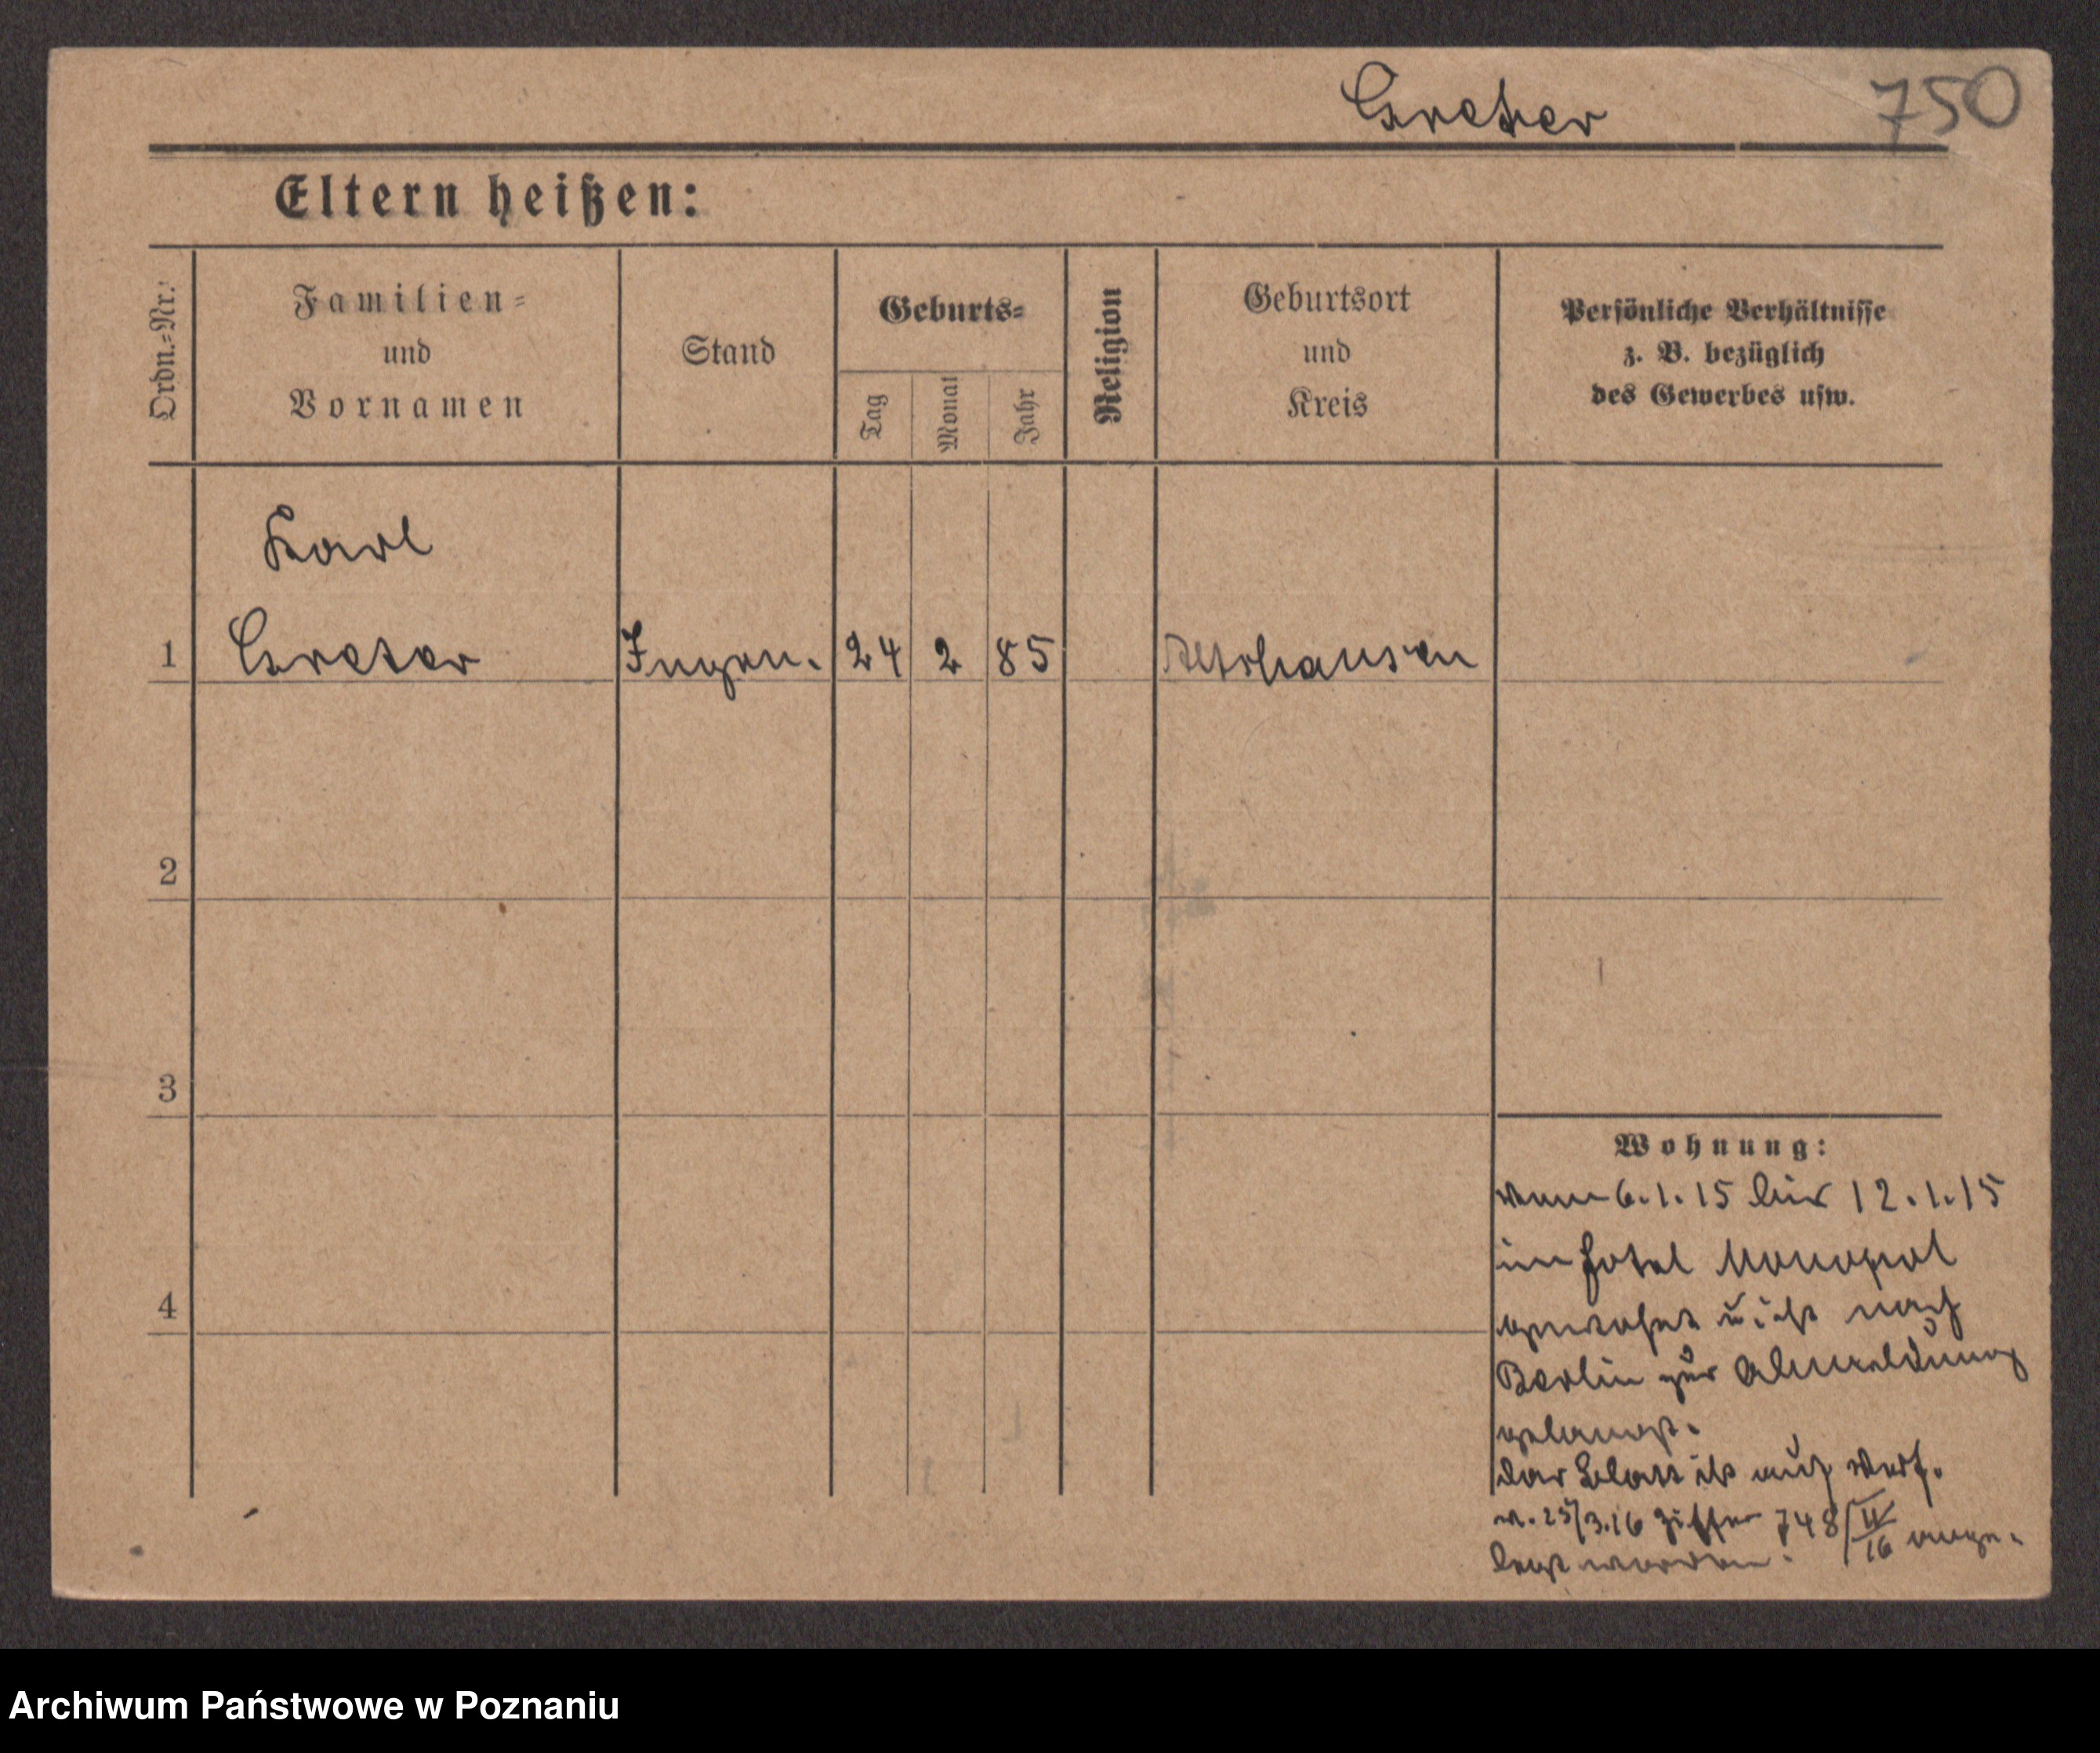 Greter 750
Eltern heißen:
Ordn.-Nr.
Familien-
und
Vornamen
Stand
Geburts-
Tag
Monat
Jahr
Religion
Geburtsort
und
Kreis
Persönliche Verhältnisse
z. B. bezüglich
des Gewerbes usw.
Karl
1 Greter Ingen. 24 2 85 Altshausen
2
3
Wohnung:
vom 6.1.15 bis 12.1.15
im Hotel Monopol
4
gewohnt u. ist nach
Berlin zur Abmeldung
gelangt.
Das Blatt ist auf Verf.
v. 25/3.16 Ziffer 748/II/16 ange-
legt worden.
Archiwum Państwowe w Poznaniu